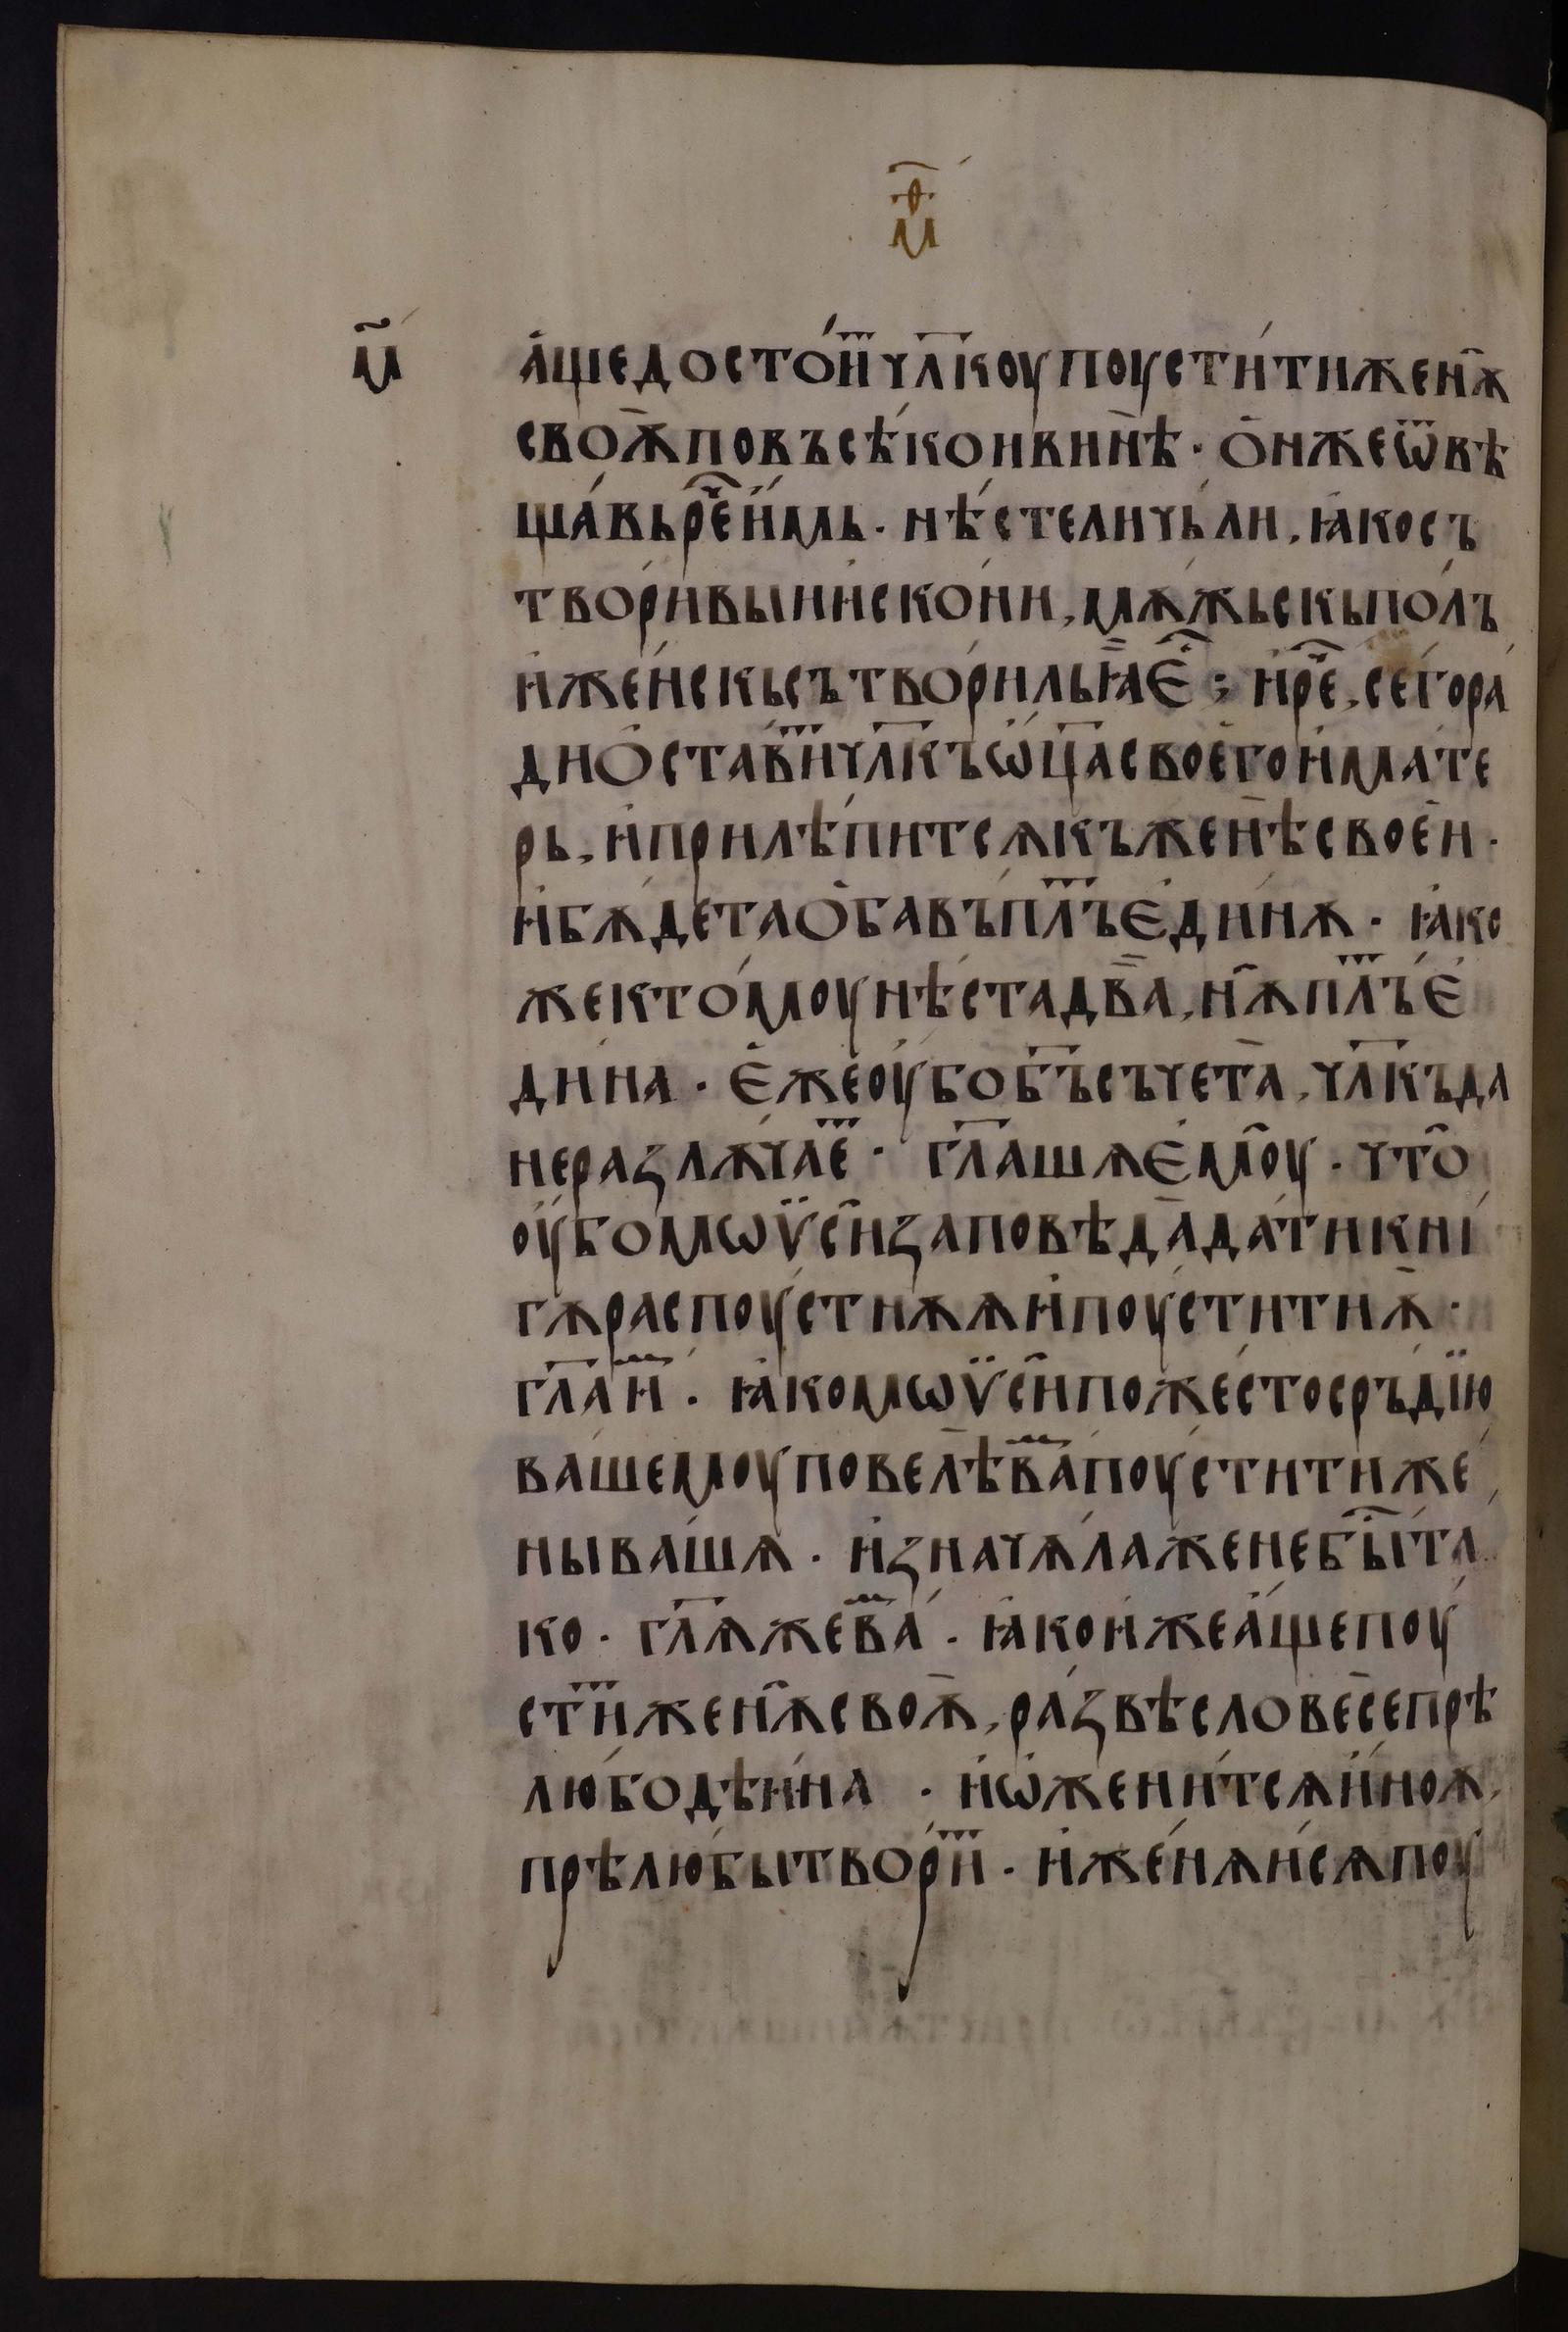 м҃ѳ
м҃
а҆щедосто́итч҃лкоупоусти́тиженѫ
своѫ̀повъсѣ́коивинѣ̀· о҆нижеѿвѣ
ща́вьрече́и҆мь. нѣ́стеличь́ли, ꙗ҆косъ
твори́выи҆иско́ни, мѫ́жьскыпо́лъ
и҆же́нскьсътвори́льꙗ҆е҆; и҆ре҃ч, сего́ра́
дио҆ста́витч҃лкъѡ҆ц҃асвоего̀и҆ма́те
рь, и҆прилѣ́питсѧкъженѣ̀свое́и·
и҆бѫ́детао҆бавъпл́тъе҆ди́нѫ· ꙗ҆ко
жекто́моунѣ́стадва̀, нѫпл́тъе҆
ди́на· е҆жеоу҆боб҃ъсъчета̀, ч҃лкъда
неразлѫча́ет· гл҃ашѧе҆моу· что
оу҆бомѡѷсизаповѣда̀да́тикни́
гѫраспоу́стнѫѫи҆поустити́ѫ·
гл҃аим. ꙗ҆комѡѷсипоже́стосръ́дїю
ва́шемоуповелѣ̀вампоусти́тиже́
ныва́шѧ. и҆значѧ́лаженебы҃та́
ко. гл҃ѧжева́м. ꙗ҆кои҆жеа҆щепоу́
ститженѫсвоѫ̀, ра́звѣсловесѐпрѣ
любодѣи́на · и҆ѡ҆жени́тсѧи҆ноѫ,
прѣлю́бытвори́т. и҆же́нѧи҆сѧпоу